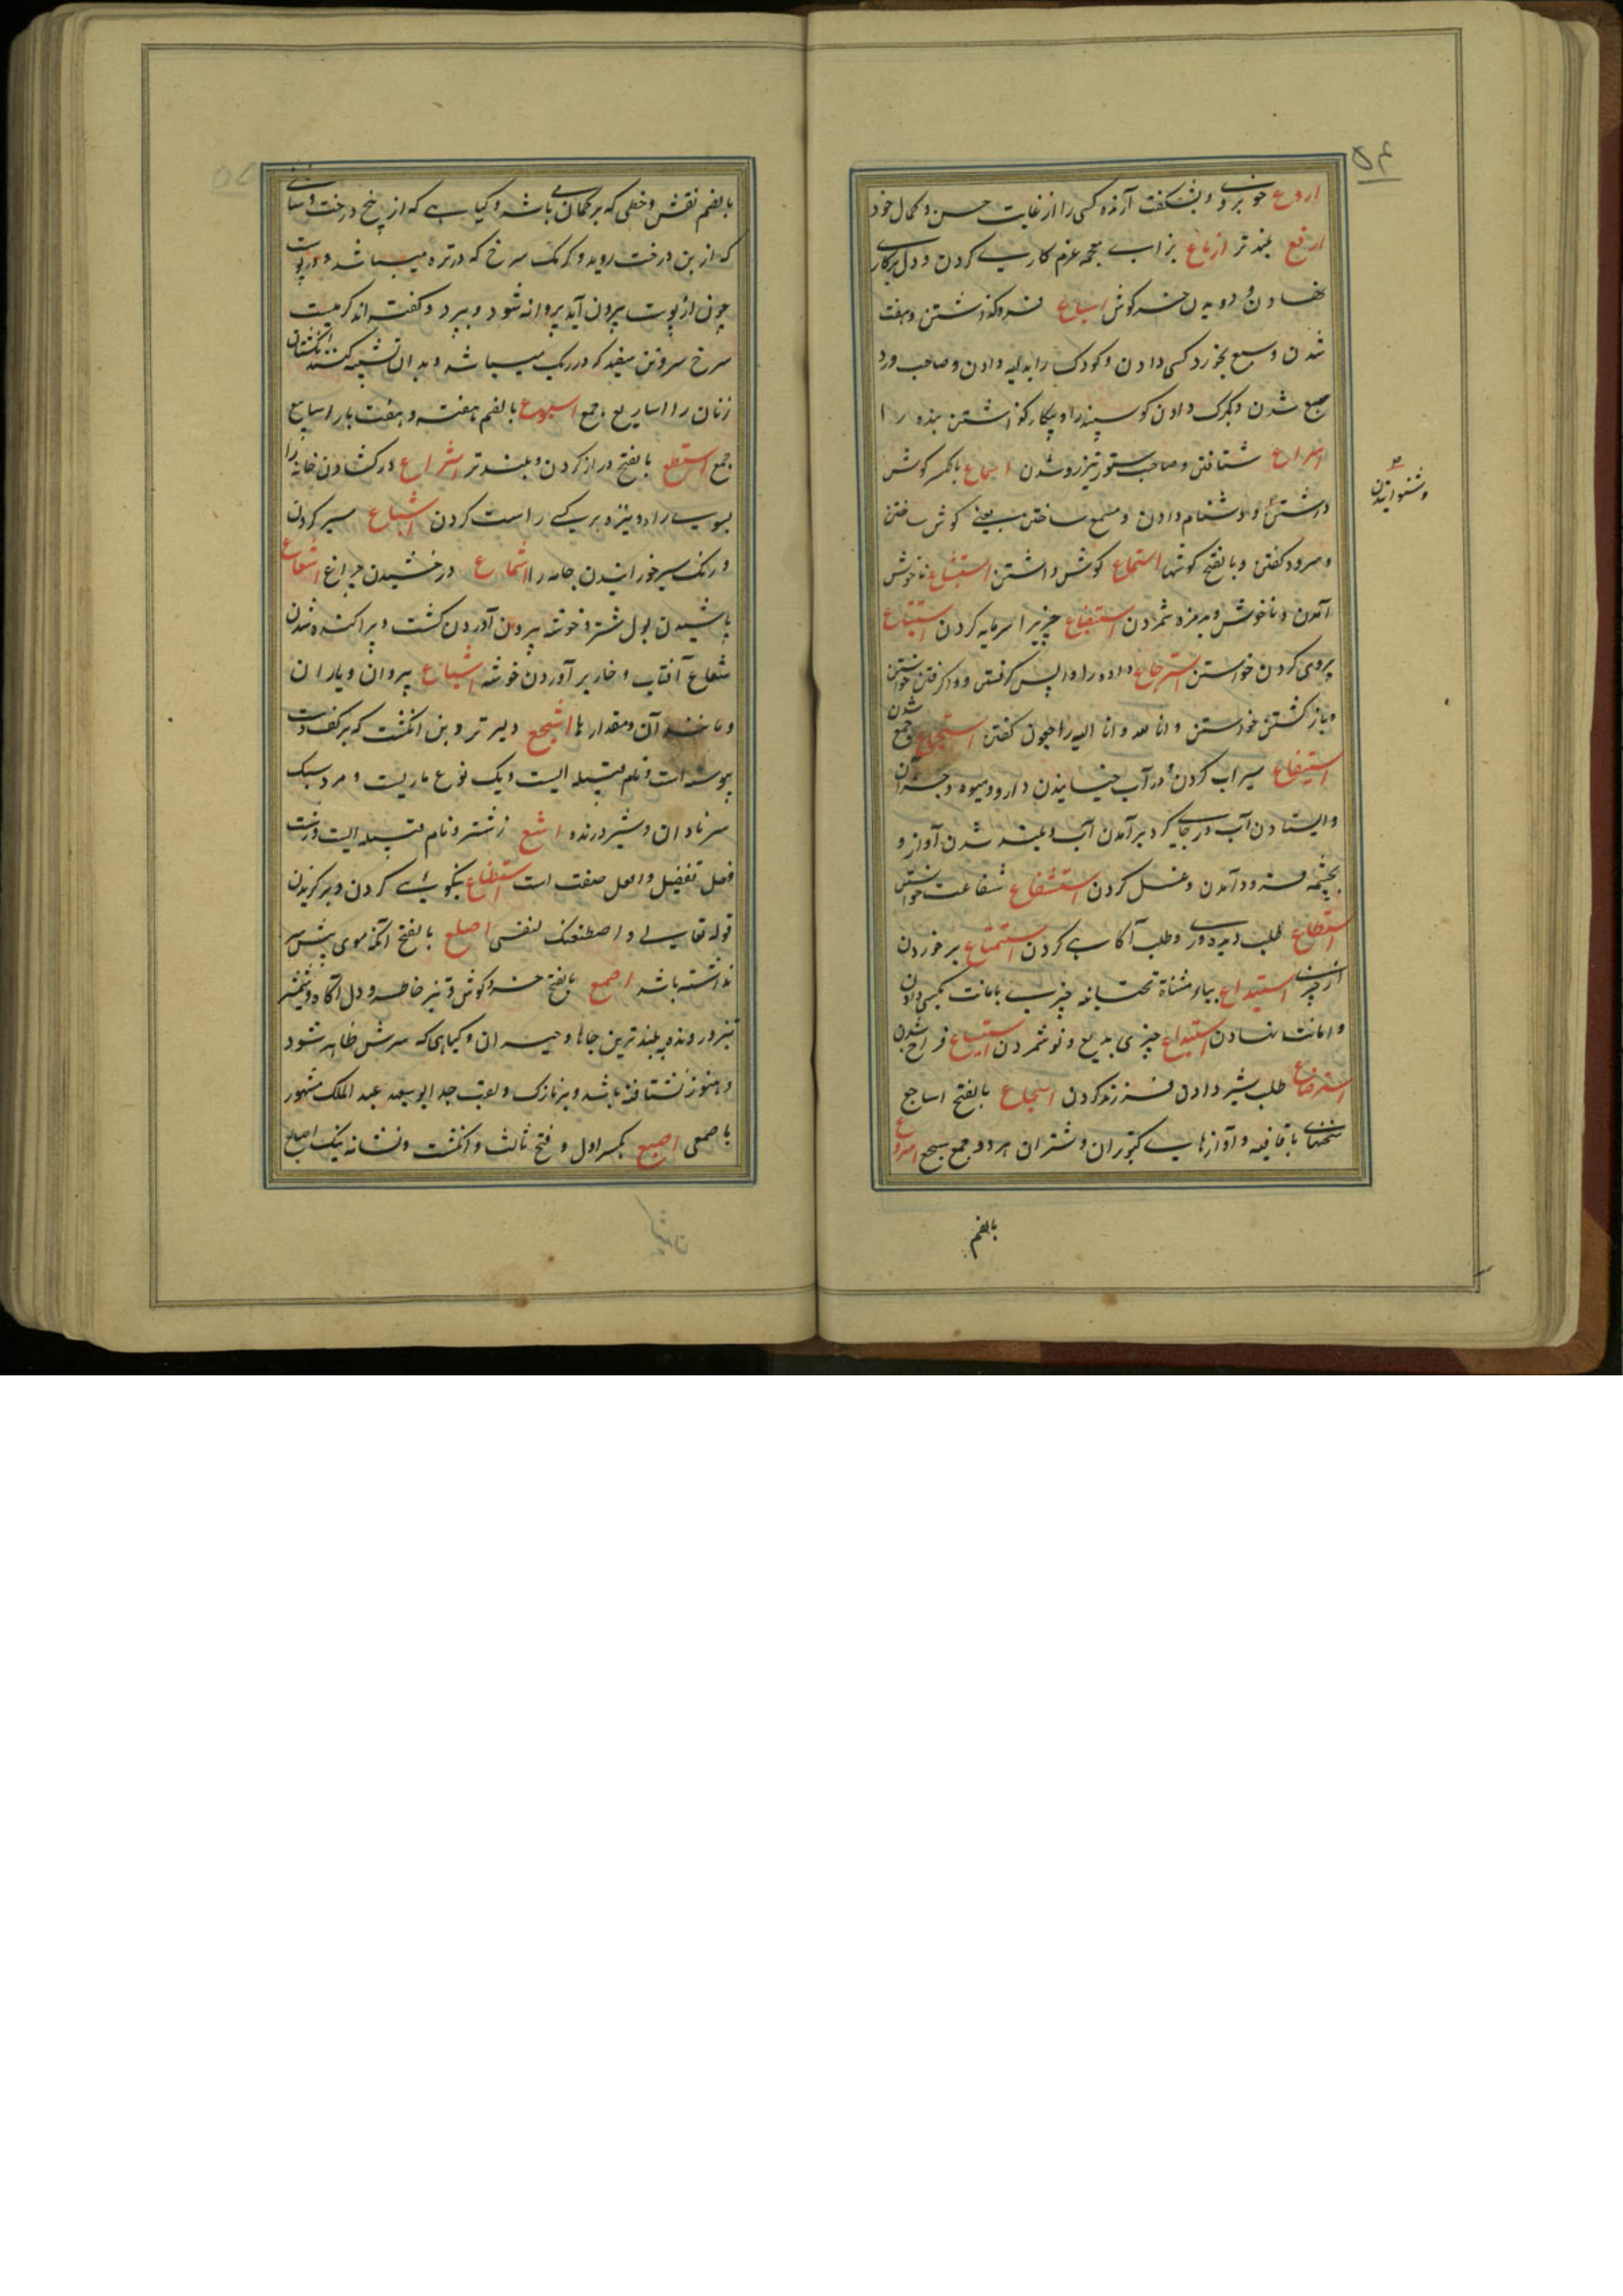 ۵۴
اروع خوبروی و بشکفت آرنده کسی را از غایت حسن و کمال خود
ارفع بلندتر ازماع بزاے معجمه عزم کاریے کردن و دل برکاری
نهادن و دویدن خرکوش اسباع فروکذاشتن و هفت
شدن و سبع بخورد کسی دادن و کودک را بدایه دادن و صاحب ورد
جمع شدن و بکرک دادن کوسپند را و بیکار کذاشتن بنده را
اسراع شتافتن و صاحب ستور تیزرو شدن اسماع بالکسر کوش
و شنوانیدن
داشتن و دشنام دادن و مسمع ساختن یعنے کوش ساختن
و سرود کفتن و بالفتح کوشها استماع کوش داشتن استبشاع ناخوش
آمدن و ناخوش و بدمزه شمردن استبضاع چیزیرا سرمایه کردن استتباع
پیروی کردن خواستن استرجاع داده را واپس کرفتن و واکرفتن خواستن
و بازکشتن خواستن و انا لله و انا الیه راجعون کفتن استجماع جمع شدن
استنقاع سیراب کردن و در آب خیسانیدن دارو و میوه و جز آن
و ایستادن آب در جایے و کرد برآمدن آب و بلند شدن آواز و
بچشمه فرود آمدن و غسل کردن استشفاع شفاعت خواستن
استطلاع طلب دیده وری و طلب آکاہے کردن استمتاع برخوردن
از چیزے استیداع بیاء مثناة تحتانیه چیزیے بامانت بکسی دادن
و امانت نهادن استبداع چیزی بدیع و نو شمردن استیساع فراخ شدن
استرضاع طلب شیر دادن فرزند کردن اسجاع بالفتح اساجع
سخنهاے باقافیه و آوازهایے کبوتران و شتران هر دو جمع سجع اسروع
بالضم
بالضم نقش و خطی که بر کمان باشد و کیاہے که از بیخ درخت و شاخے
که از بن درخت روید و کرمک سرخ که در تره میباشد و در پوست
چون از پوست بیرون آید پروانه شود و بپرد و کفته اند کرمیست
سرخ سر و تن سفید که در ریک میباشد و بدان تشبیه کنند انکشتان
زنان را اساریع جمع اسبوع بالضم هفته و هفت بار اسابیع
جمع اسطع بالفتح دراز کردن و بلندتر اشراع درکشادن خانه را
بسوے راه و نیزه بر کسے راست کردن اشباع سیر کردن
و رنک سیر خورانیدن جامه را اشماع درخشیدن چراغ اشعاع
پاشیدن بول شتر و خوشه بیرون آوردن کشت و پراکنده شدن
شعاع آفتاب و خار برآوردن خوشه اشیاع پیروان و یاران
و مانند آن و مقدارها اشجع دلیرتر و بن انکشت که بر کف دست
پیوسته است و نام قبیله ایست و یک نوع ماریست و مرد سبک
سر نادان و شیر درنده اشنع زشتر و نام قبیله ایست و زشت
افعل تفضیل و افعل صفت است اصطناع نیکوئے کردن و برکزیدن
قوله تعالے و اصطنعتک لنفسی اصلع بالفتح آنکه موی پیش سر
نداشته باشد اصمع بالفتح خردکوش و تیزخاطر و دل آکاه و شمشیر
تیز و رونده به بلندترین جاها و حیران و کیاهی که سرش ظاهر شود
و هنوز نشکافته باشد و پر نازک و لقب جد ابو سعید عبد الملک مشهور
باصمعی اصبع بکسر اول و فتح ثالث و انکشت و نشانه نیک اصابع